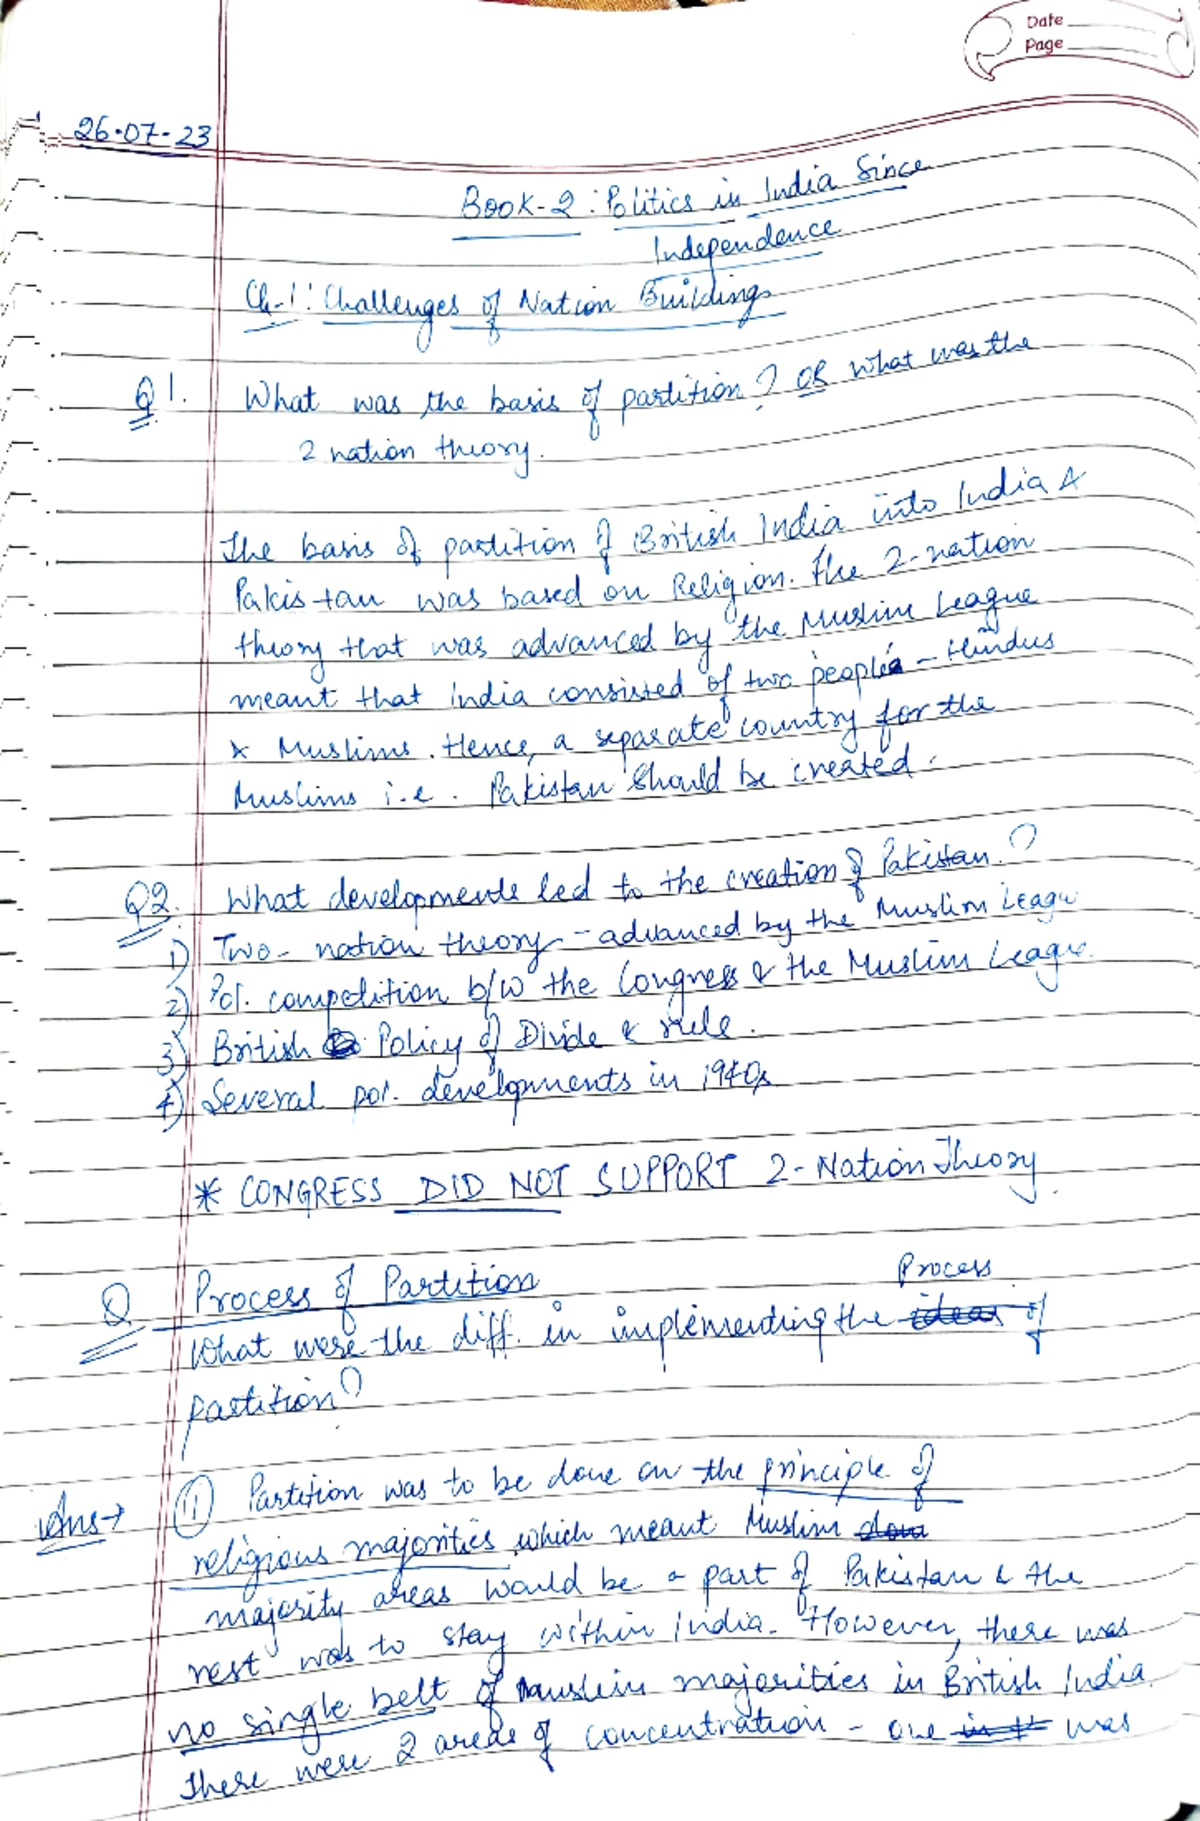 Date
Page
26-07-23
Book-2 : Politics in India Since
Independence
Ch-1: Challenges of Nation Buildings
Q1. What was the basis of partition? OR what was the
2 nation theory.
The basis of partition of British India into India &
Pakistan was based on Religion. The 2-nation
theory that was advanced by the Muslim League
meant that India consisted of two people - Hindus
& Muslims. Hence, a separate country for the
Muslims i.e. Pakistan should be created.
Q2. What developments led to the creation of Pakistan.?
1) Two-nation theory - advanced by the Muslim League
2) Pol. competition b/w the Congress & the Muslim League.
3) British Policy of Divide & rule.
4) Several pol. developments in 1940s
* CONGRESS DID NOT SUPPORT 2-Nation Theory.
Q Process of Partition
Process
What were the diff. in implementing the ideas of
partition?
Ans→ (1) Partition was to be done on the principle of
religious majorities which meant Muslim
majority areas would be a part of Pakistan & the
rest was to stay within India. However, there was
no single belt of muslim majorities in British India.
There were 2 areas of concentration - one in it was